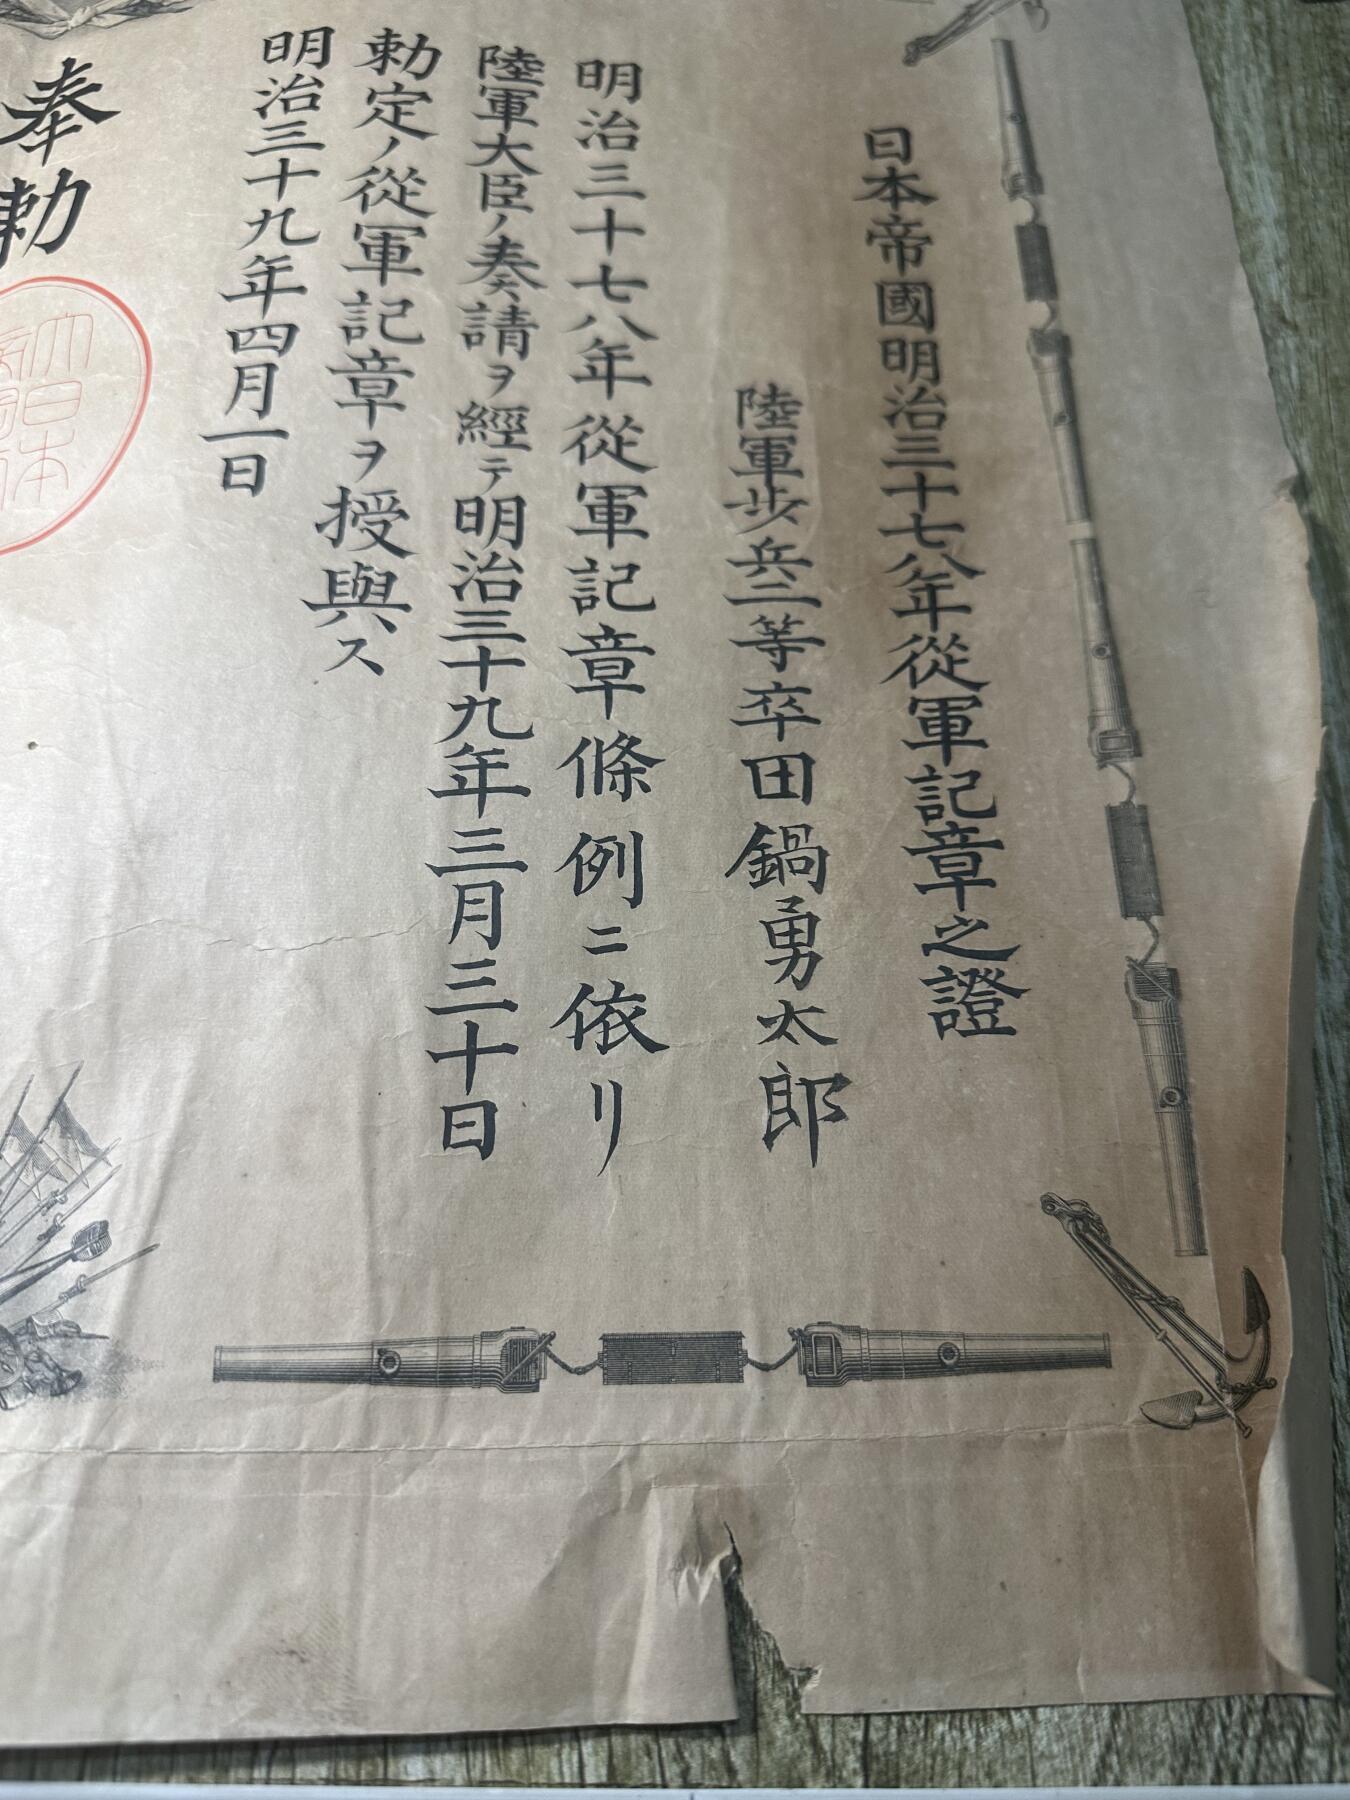 日本帝國明治三十七八年從軍記章之證
陸軍歩兵二等卒田鍋勇太郎
明治三十七八年從軍記章條例ニ依リ
陸軍大臣ノ奏請ヲ經テ明治三十九年三月三十日
勅定ノ從軍記章ヲ授與ス
明治三十九年四月一日
奉勅
大日本